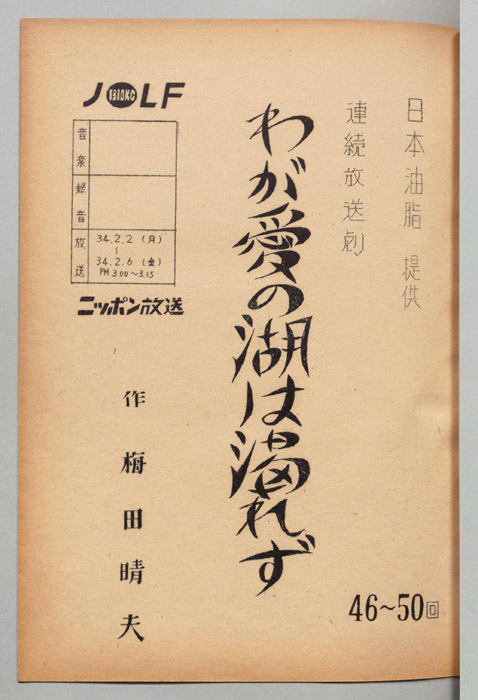 日本油脂 提供
連続放送劇
わが愛の湖は涸れず
46～50回
JOLF
1310KC
音楽
録音
放送
34.2.2（月）
～
34.2.6（金）
PM 3.00～3.15
ニッポン放送
作 梅田晴夫